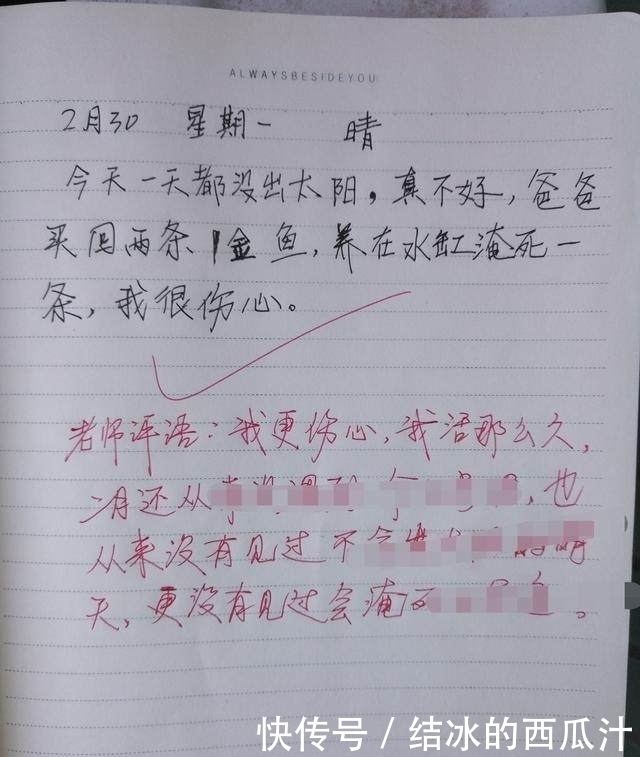 ALWAYSBESIDEYOU
2月30 星期一 晴
今天一天都没出太阳，真不好，爸爸
买回两条金鱼，养在水缸淹死一
条，我很伤心。
老师评语：我更伤心，我活那么久，
二月还从 ，也
从来没有见过不
天，更没有见过会淹 。
快传号 / 结冰的西瓜汁